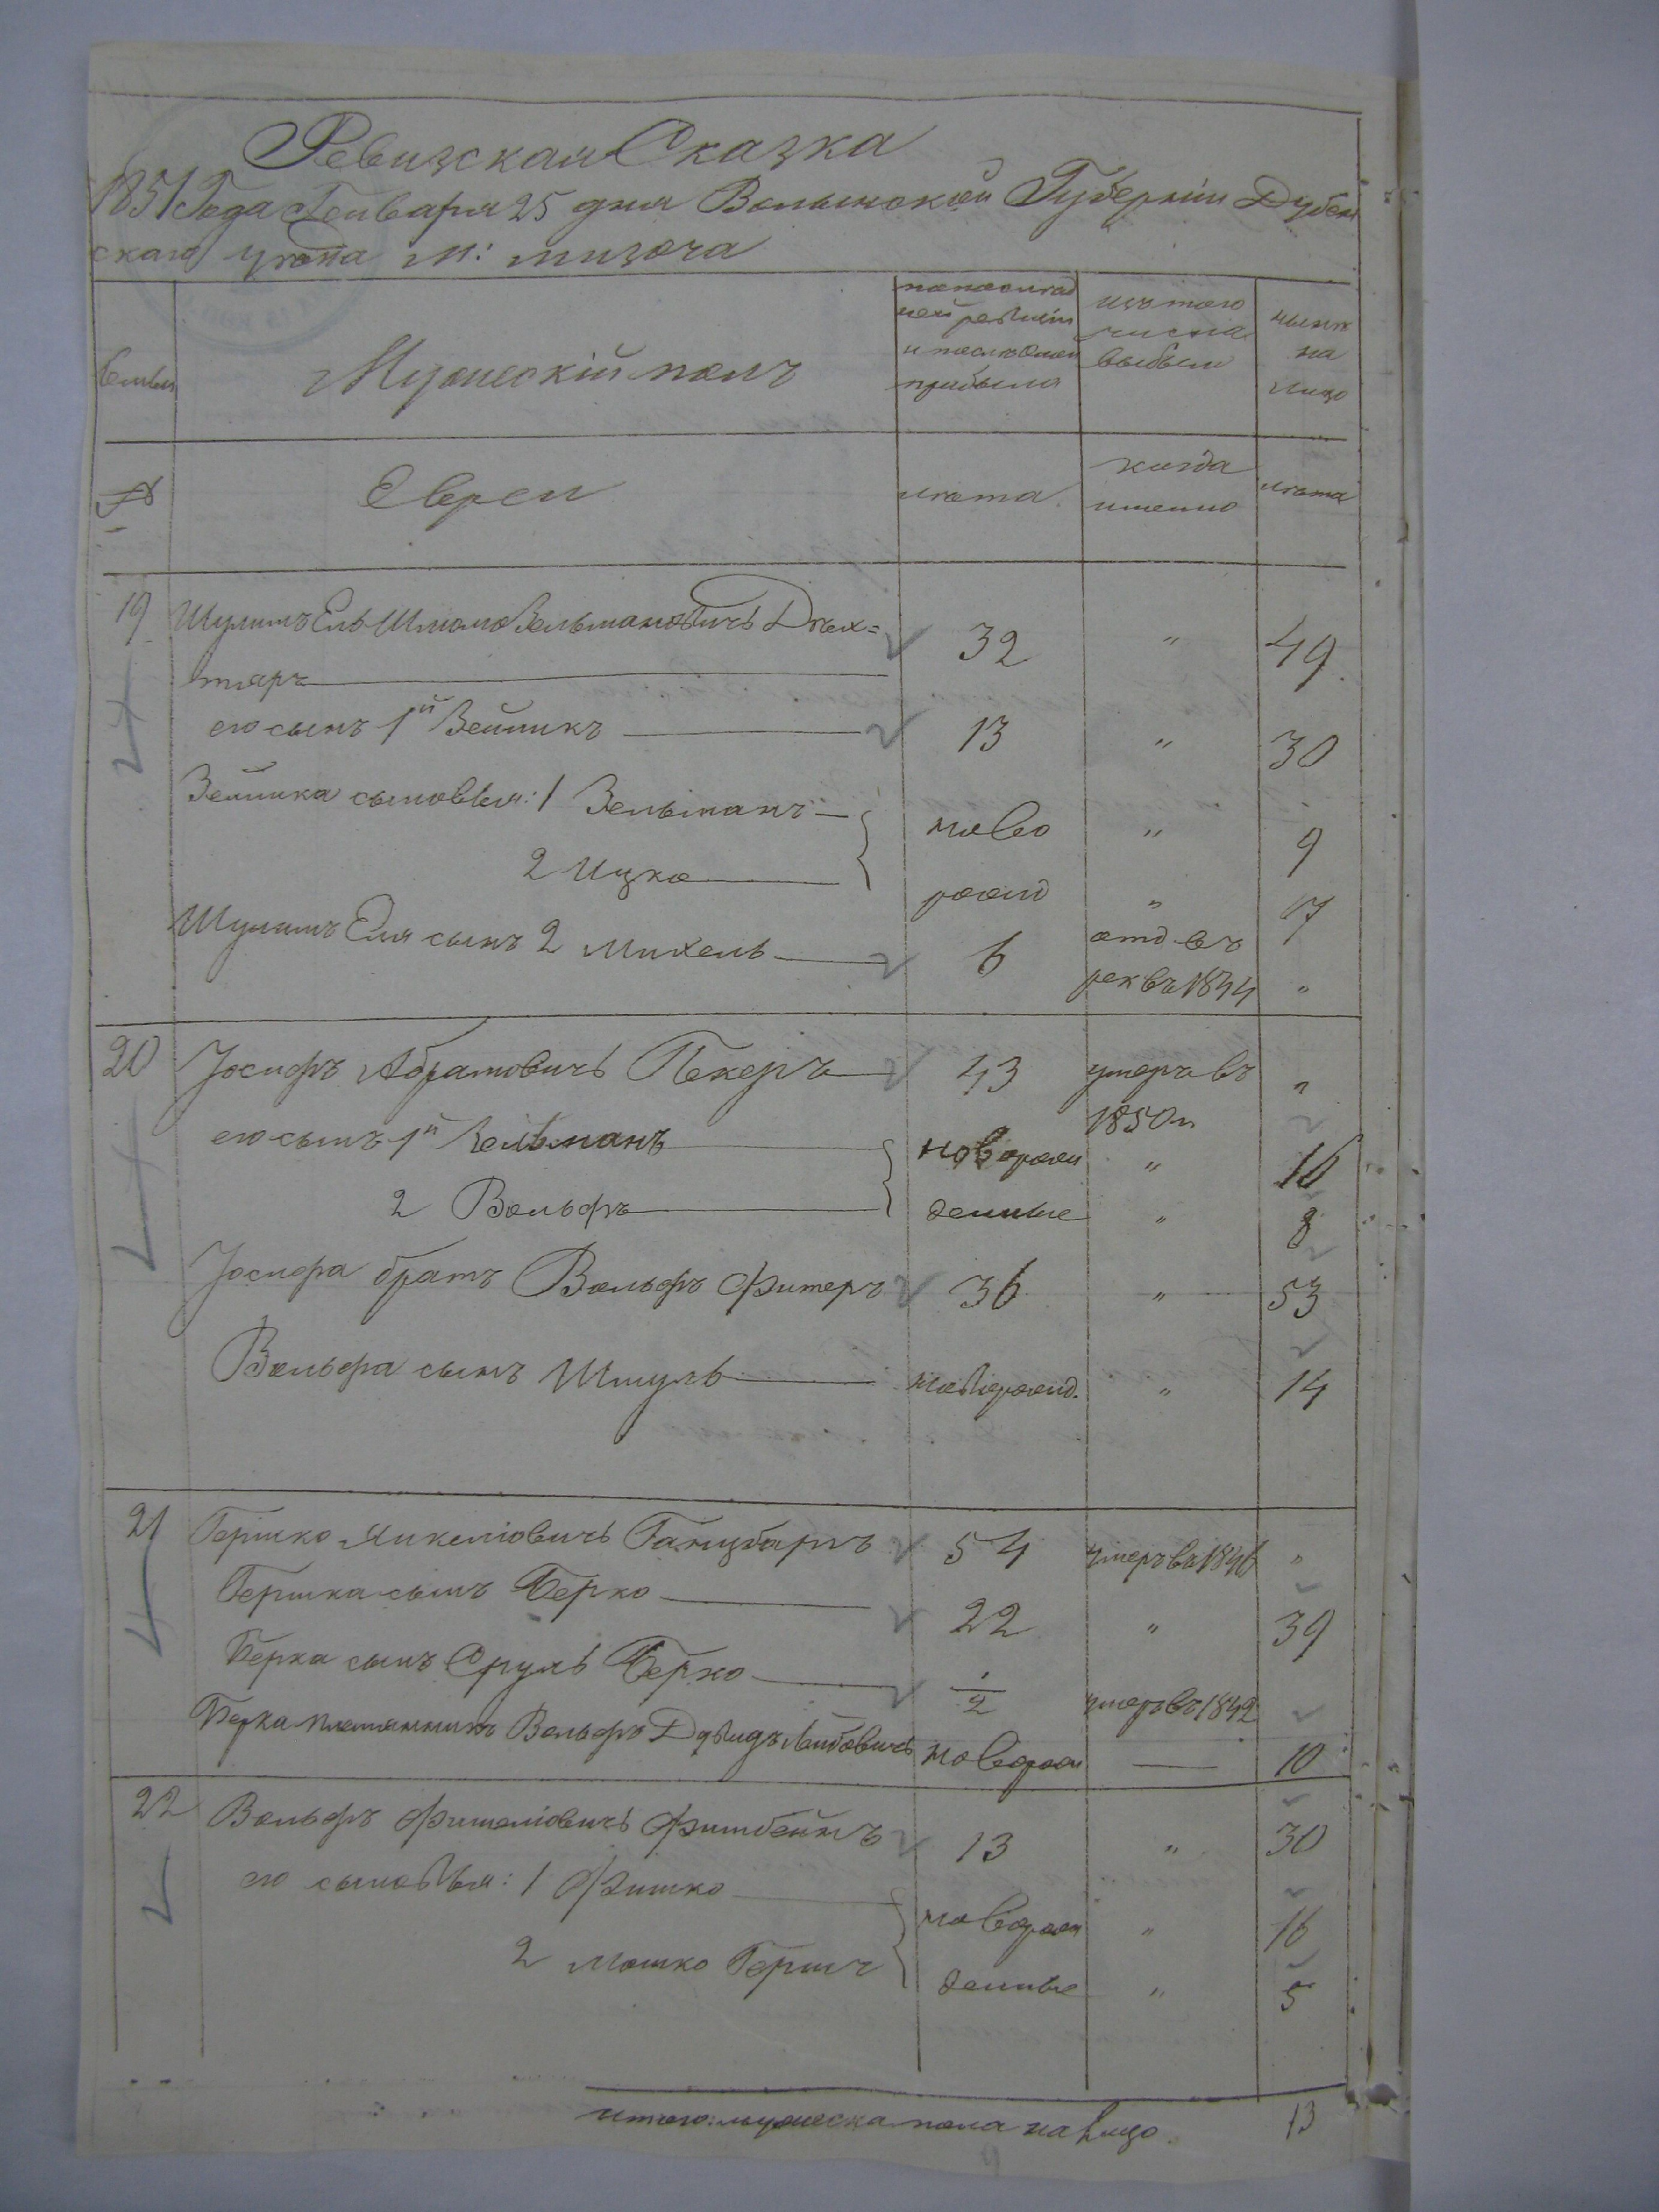 Ревизская Сказка
1851 Года Генваря 25 дня Волынской Губернии Дубен
скаго уезда М: Мизоча
Семьи
Мужескій полъ
по послед
ней ревизіи
и после оной
прибыло
изъ того
числа
выбыли
ныне
на
лицо
№
Евреи
лета
когда
именно
лета
19 Шулимъ Ель Шлиома Зельмановичъ Дыхъ=
32 " 49
тяръ
его сынъ 1й Зейликъ 13 " 30
Зейлика сыновья: 1 Зельманъ ново " 9
2 Ицко рожд " 7
Шулимъ Еля сынъ 2 Михель 6 отд въ
рек въ 1844 "
20 Іосифъ Абрамовичъ Пекеръ 43 умеръ въ "
1850м
его сынъ 1й Зельманъ новорож " 16
2 Вольфъ денные " 8
Іосифа братъ Вольфъ Фитеръ 36 " 53
Вольфа сынъ Шмуль новорожд. " 14
21 Гершко Янкеліовичъ Ганцбаръ 54 умеръ въ 1846 "
Гершка сынъ Берко 22 " 39
Берка сынъ Сруль Берко 1/2 умеръ въ 1842
Берка племянникъ Вольфъ Дувидъ Лейбовичъ новорож — 10
22 Вольфъ Фишеліовичъ Фишбейнъ 13 " 30
его сыновья: 1 Фишко новорож " 16
2 Мошко Гершъ денные " 5
итого: мужеска пола на лицо 13